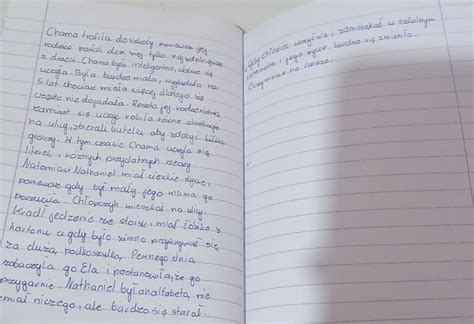 Chama trafiła do szkoły ponieważ jej
rodzice posłali do niej tylko najzdolniejsze
z dzieci. Chama była inteligentna, dobrze się
uczyła. Była bardzo mała, wyglądała na
5 lat chociaż miała więcej dlatego, że
często nie dojadała. Reszta jej rodzeństwa
zamiast się uczyć robiła różne
na ulicy, zbierali butelki aby zdobyć kilka
groszy. W tym czasie Chama uczyła się
literek i różnych przydatnych rzeczy.
Natomiast Nathaniel miał ciężkie życie,
ponieważ gdy był mały jego mama go
porzuciła. Chłopczyk mieszkał na ulicy.
Kradł jedzenie ze stoisk, miał łóżko z
kartonu a gdy było zimno przykrywał się
za dużą podkoszulką. Pewnego dnia
zobaczyła go Ela i postanowiła, że go
przygarnie. Nathaniel był analfabetą, nie
miał niczego, ale bardzo się starał.
Gdy chłopiec uczył się, zamieszkał w szkolnym
internacie i jego życie bardzo się zmieniło.
Oczywiście na lepsze.